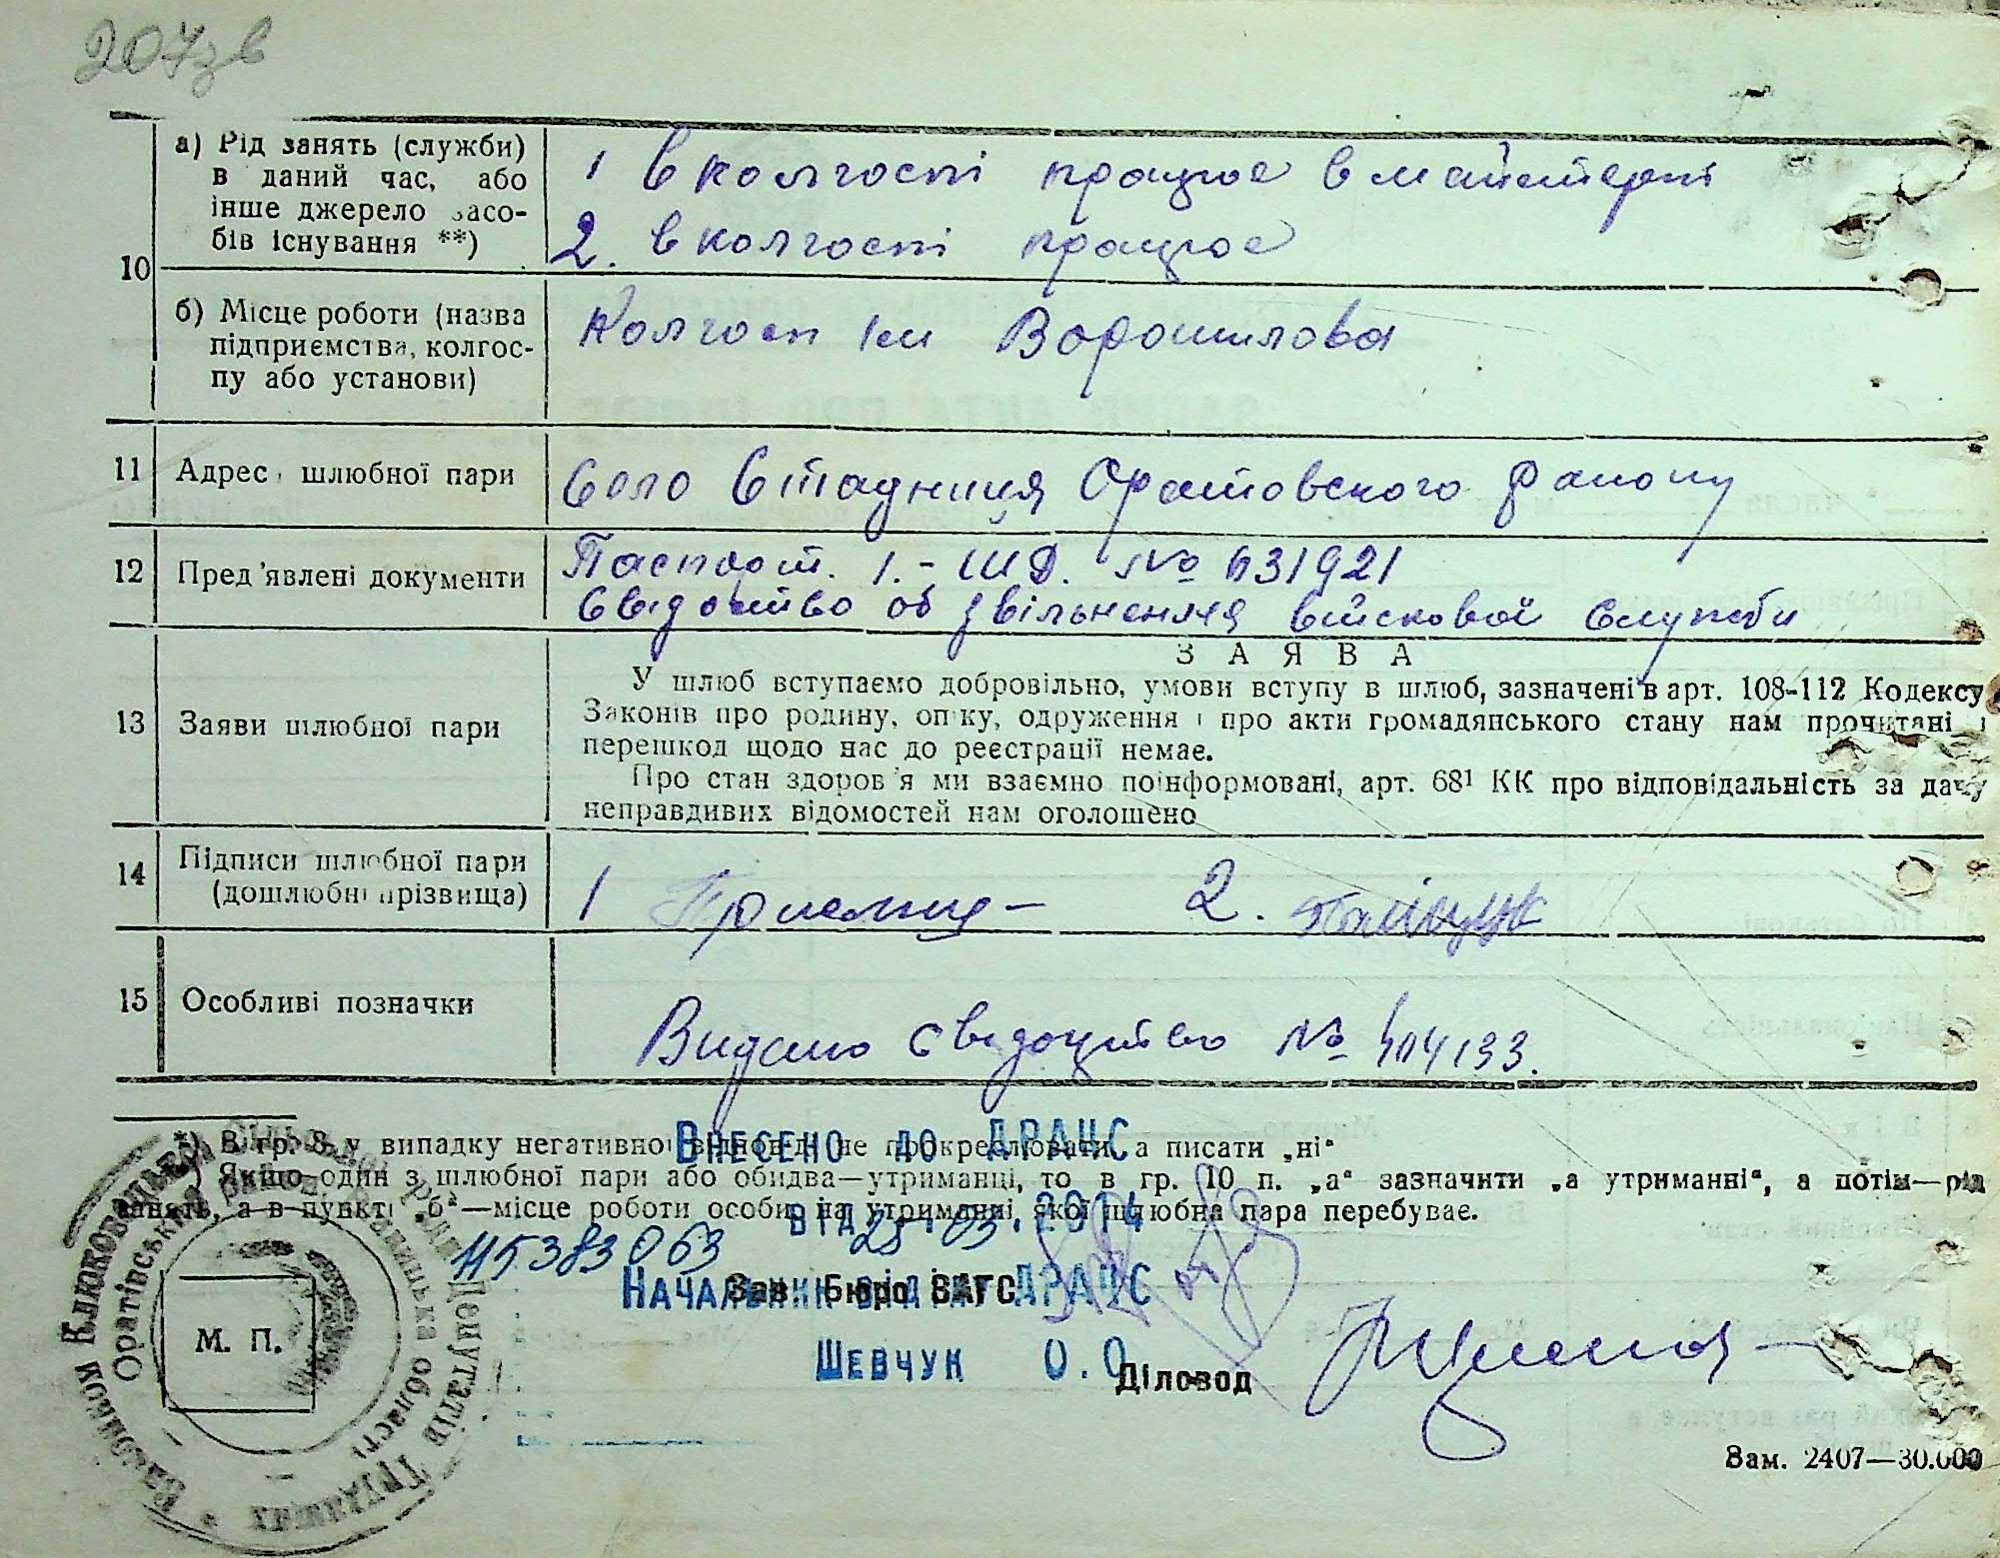 207зв
10
а) Рід занять (служби) в даний час, або інше джерело засобів існування **)
1 в колгоспі працює в майстерні
2. в колгоспі працює
б) Місце роботи (назва підприємства, колгоспу або установи)
Колгосп Ім Ворошилова
11 Адреса шлюбної пари
Село Стадниця Оратовского району
12 Пред'явлені документи
Паспорт. 1.- ШД. № 631921
Свідоство об звільнення військової служби
З А Я В А
13 Заяви шлюбної пари
У шлюб вступаємо добровільно, умови вступу в шлюб, зазначені в арт. 108-112 Кодексу
Законів про родину, опіку, одруження і про акти громадянського стану нам прочитані і
перешкод щодо нас до реєстрації немає.
Про стан здоров'я ми взаємно поінформовані, арт. 68¹ КК про відповідальність за дачу
неправдивих відомостей нам оголошено
14 Підписи шлюбної пари (дошлюбні прізвища)
1 2.
15 Особливі позначки
Видано свідоцтво № 404133.
*) В гр. 8-у випадку негативної відповіді не прокреслювати, а писати „ні“
**) Якщо один з шлюбної пари або обидва—утриманці, то в гр. 10 п. „а“ зазначити „а утриманні“, а потім—рід
занять, а в пункті „б“—місце роботи особи, на утриманні якої шлюбна пара перебуває.
ВНЕСЕНО ДО ДРАЦС
ВІД 25.03.2014
115383063
НАЧАЛЬНИК ВІДДІЛУ ДРАЦС
Зав. Бюро ЗАГС
ШЕВЧУК О.О
Діловод
М. П.
Оратівського району, Вінницька область
Депутатів Трудящих
Зам. 2407—30.000